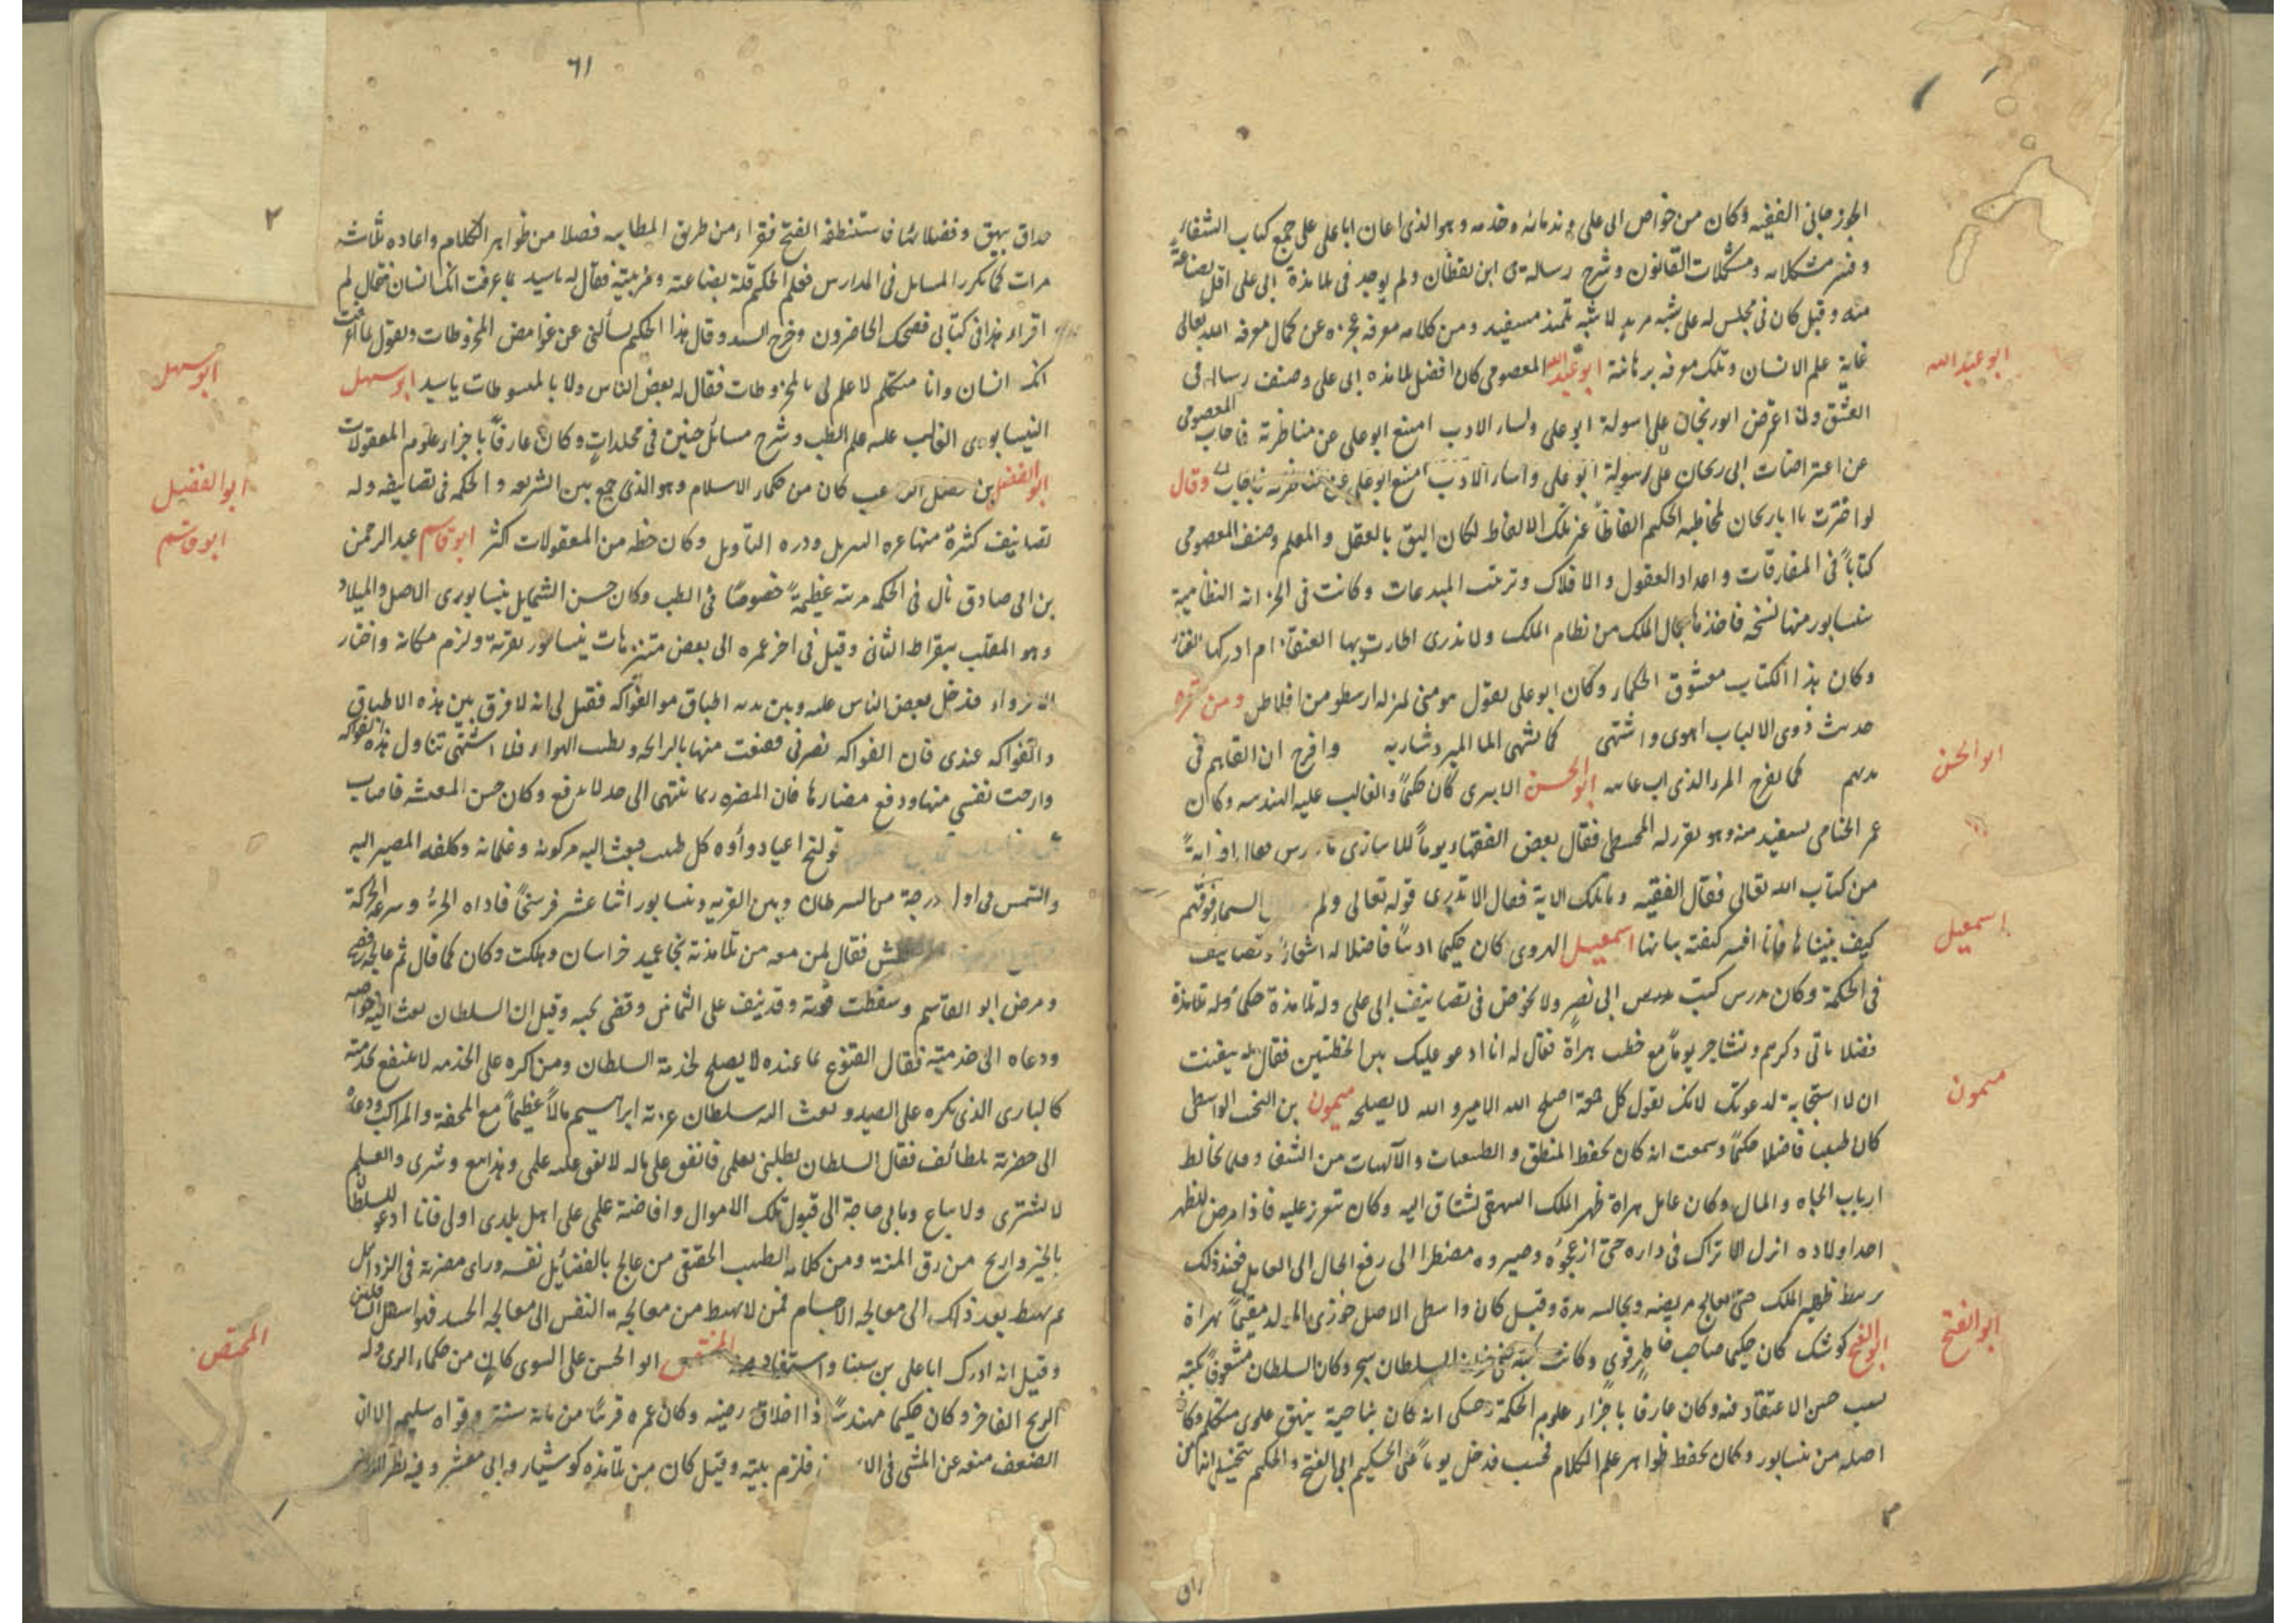 الجوزجانى الفقيه وكان من خواص ابى على وندمائه وخدمه وهو الذى اعان ابا على على جمع كتاب الشفاء
وفسر مشكلاته ومشكلات القانون وشرح رسالة ابن يقظان ولم يوجد فى تلامذة ابى على اقل بضاعة
منه وقيل كان فى مجلس له على شبه مريد لا شبه تلميذ مستفيد ومن كلامه معرفه عجزه عن كمال معرفه الله تعالى
غاية علم الانسان وتلك معرفه برهانية ابو عبد الله المعصومى كان افضل تلامذه ابى على وصنف رساله فى
العشق ولما اعترض ابو ريحان على اسولة ابو على واساء الادب امتنع ابو على عن مناظرته فاجاب المعصومى
عن اعتراضات ابى ريحان على اسولة ابو على واساء الادب امتنع ابو على عن مناظرته فاجاب وقال
لو اخترت يا ابا ريحان لمخاطبه الحكيم الفاظاً غير تلك الالفاظ لكان اليق بالعقل والعلم وصنف المعصومى
كتاباً فى المفارقات واعداد العقول والافلاك وترتيب المبدعات وكانت فى الخزانه النظامية
بنيسابور منها نسخه فاخذها جمال الملك من نظام الملك ولا ندرى اطارت بها العنقاء ام ادركها
وكان هذا الكتاب معشوق الحكماء وكان ابو على يقول هو منى بمنزله ارسطو من افلاطن ومن
حديث ذوى الالباب اهوى واشتهى كما يشتهى الماء المبرد شاربه وافرح ان القاهم فى
نديهم كما يفرح المرء الذى اب غايبه ابو الحسن الابيرى كان حكيماً والغالب عليه الهندسه وكان
عمر الخيامى يستفيد منه وهو يقرر له المجسطى فقال بعض الفقهاء يوماً
من كتاب الله تعالى فقال الفقيه وما تلك الاية فقال الا تدبرى قوله تعالى ولم السماء فوقهم
كيف بنيناها فانا افسر كيفية بنائها اسمعيل الهروى كان حكيما اديبا فاضلا له اشعار وتصانيف
فى الحكمة وكان يدرس كتب ابى نصر ولا يخوض فى تصانيف ابى على وله تلامذة حكماء وله تلامذة
فضلا ياتى ذكرهم وتشاجر يوماً مع خطيب هراة فقال له انا ادعو عليك بين الخطبتين فقال تيقنت
ان لا استجابة لدعوتك لانك تقول كل جمعة اصلح الله الامير والله لا يصلحه ميمون بن النجيب الواسطى
كان طبيبا فاضلا حكيماً وسمعت انه كان يحفظ المنطق والطبيعيات والالهيات من الشفا وقلما يخالط
ارباب الجاه والمال وكان عامل هراة ظهير الملك البيهقى يشتاق اليه وكان يتعزز عليه فاذا مرض لظهير
احد اولاده انزل الاتراك فى داره حتى ازعجوه وصيروه مضطرا الى رفع الحال الى العامل فعند ذلك
يربط ظهير الملك حتى يعالج مريضه ويجالسه مدة وقيل كان واسطى الاصل خوزى المولد مقيماً بهراة
ابو الفتح كوشك كان حكيما صاحب خاطر قوى وكانت كتبه فى خزانة السلطان سنجر وكان السلطان مشغوفاً بكتبه
بسبب حسن الاعتقاد فيه وكان عارفا باجزاء علوم الحكمة وحكى انه كان بناحية بيهق علوى متكلم وكان
اصله من نيسابور وكان يحفظ ظواهر علم الكلام فحسب فدخل يوماً على الحكيم ابى الفتح والحكيم يتخيل انه من
ابو عبد الله
ابو الحسن
اسمعيل
ميمون
ابو الفتح
٦١
٢
حذاق بيهق وفضلائها فاستنطقه الفتح فقراء من طريق المطايبه فصلا من ظواهر الكلام واعاده ثلاث
مرات كما تكرر المسايل فى المدارس فعلم الحكيم قلة بضاعته وغريبته فقال له يا سيد بما عرفت انك انسان فقال لم
اقراء هذا فى كتابى فضحك الحاضرون وخرج السيد وقال هذا الحكيم يسألنى عن غوامض المخروطات ويقول بما عرفت
انك انسان وانا متكلم لا علم لى بالمخروطات فقال له بعض الناس ولا بالمبسوطات يا سيد ابو سهل
النيسابورى الغالب عليه علم الطب وشرح مسائل حنين فى مجلدات وكان عارفاً باجزاء علوم المعقولات
ابو الفضل بن الراغب كان من حكماء الاسلام وهو الذى جمع بين الشريعه والحكمه فى تصانيفه وله
تصانيف كثيرة منها غره التنزيل ودره التاويل وكان حظه من المعقولات اكثر ابو قاسم عبد الرحمن
بن ابى صادق نال فى الحكمه مرتبه عظيمة خصوصاً فى الطب وكان حسن الشمايل نيسابورى الاصل والميلاد
وهو الملقب ببقراط الثانى وقيل فى اخر عمره الى بعض متنزهات نيسابور بقرية ولزم مكانه واختار
الانزواء فدخل بعض الناس عليه وبين يديه اطباق من الفواكه فقيل لى انه لا فرق بين هذه الاطباق
والفواكه عندى فان الفواكه تضرنى فقنعت منها بالرائحه وطيب الهواء فلا اشتهى تناول هذه الفواكه
وارحت نفسى منها ودفع مضارها فان المضره ربما تنتهى الى حد لا يدفع وكان حسن المعيشه فاصاب
قولنج اعيا دواؤه كل طبيب فبعث اليه مركوبه وغلمانه وكلفه المصير اليه
والشمس فى اول درجة من السرطان وبين القريه ونيسابور اثنا عشر فرسخاً فاذاه الحر وسرعه الحركة
عطش فقال لمن معه من تلامذته نجا عميد خراسان وهلكت وكان كما قال ثم عالجه فصح
ومرض ابو القاسم وسقطت قوته وقد نيف على الثمانين وقضى نحبه وقيل ان السلطان بعث اليه
ودعاه الى خدمته فقال القنوع بما عنده لا يصلح لخدمة السلطان ومن اكره على الخدمه لا ينتفع بخدمته
كالبازى الذى يكره على الصيد وبعث اليه سلطان غزنه ابراهيم مالاً عظيماً مع المحفة والمراكب ودعاه
الى حضرته بلطائف فقال السلطان يطلبنى بعلمى فانفق على ماله لانفق عليه علمى وهذا بيع وشرى والعلم
لا يشترى ولا يباع ومابى حاجة الى قبول تلك الاموال وافاضة علمى على اهل بلدى اولى فانا ادعو للسلطان
بالخير واريح من رق المنة ومن كلامه الطبيب الحقيقى من عالج بالفضائل نفسه وراى مضرته فى الرذائل
ثم يهبط بعد ذلك الى معالجه الاجسام فمن لا يهبط من معالجة النفس الى معالجه الجسد فهو اسفل السافلين
وقيل انه ادرك ابا على بن سينا واستفاد منه ابو الحسن على النسوى كان من حكماء الرى وله
الزيج الفاخر وكان حكيما مهندساً ذا اخلاق رضيه وكان عمره قريباً من مائة سنة وقواه سليمه الا ان
الضعف منعه عن المشى فى فلزم بيته وقيل كان من تلامذه كوشيار وابى معشر وفيه نظر
ابو سهل
ابو الفضيل
ابو قاسم